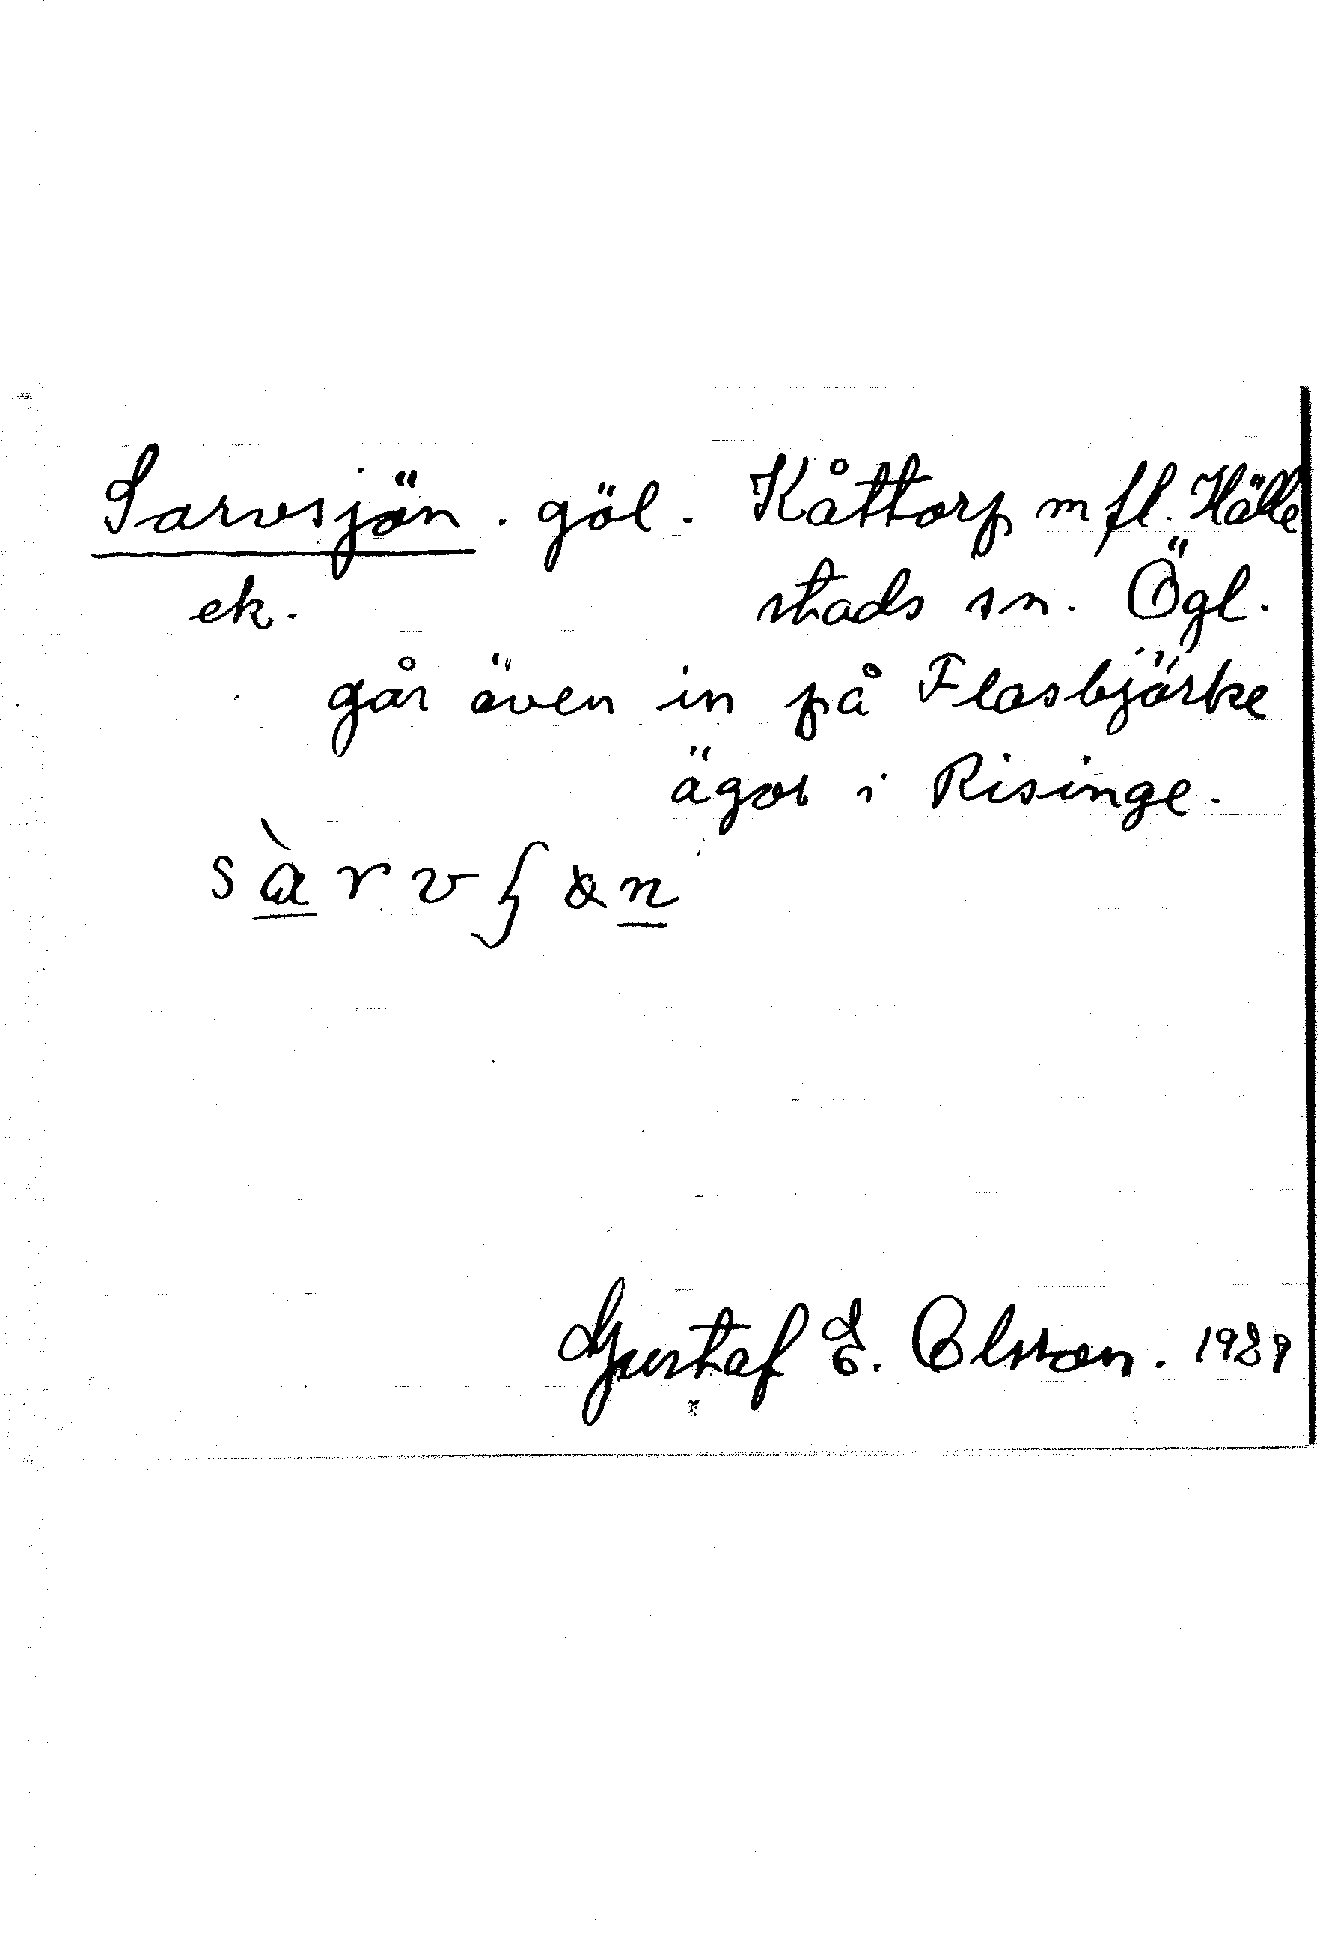 Sarvsjön. göl. Kåttorp m fl. Hälle
ek. stads sn. Ögl.
går även in på Flasbjörke
ägor i Risinge.
Gustaf E. Olsson. 1929